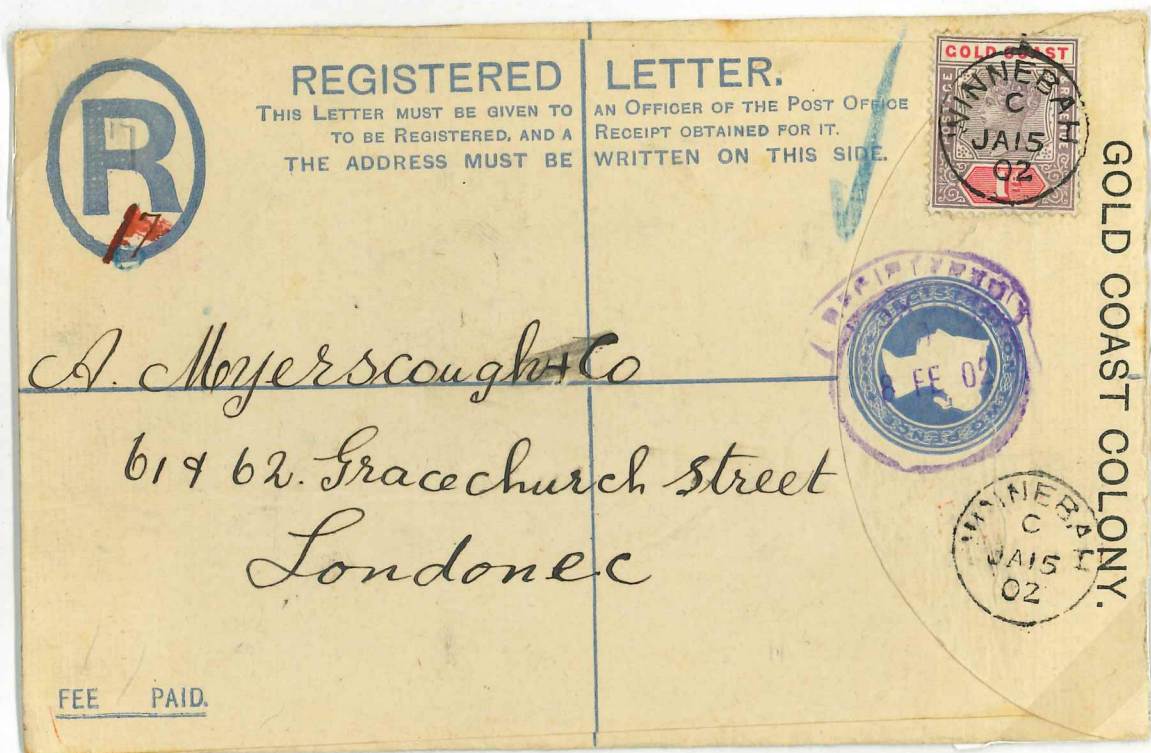 REGISTERED LETTER.
THIS LETTER MUST BE GIVEN TO AN OFFICER OF THE POST OFFICE
TO BE REGISTERED, AND A RECEIPT OBTAINED FOR IT.
THE ADDRESS MUST BE WRITTEN ON THIS SIDE.
R
17
GOLD COAST
POSTAGE
WINNEBAH
C
JA15
02
GOLD COAST COLONY.
8 FE 02
A. Myerscough & Co
61 & 62. Gracechurch Street
London E C
WINNEBAH
C
JA15
02
FEE PAID.